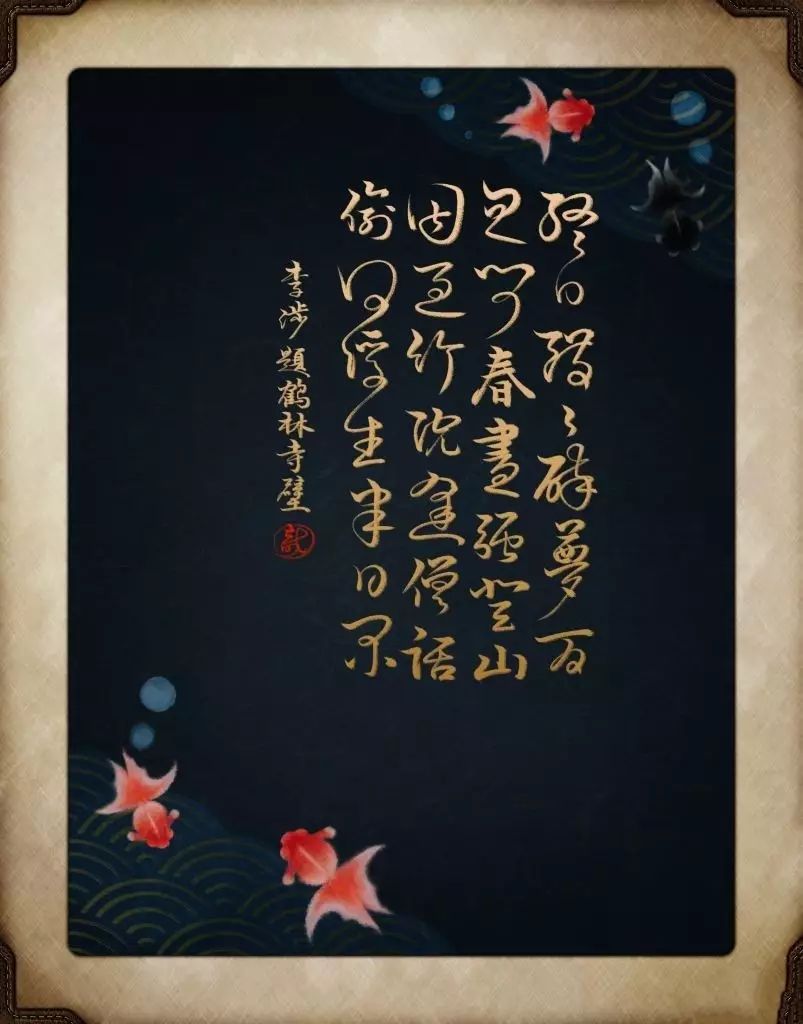 終日昏〻醉夢间
忽闻春盡强登山
因过竹院逢僧话
偷得浮生半日闲
李涉題鹤林寺壁